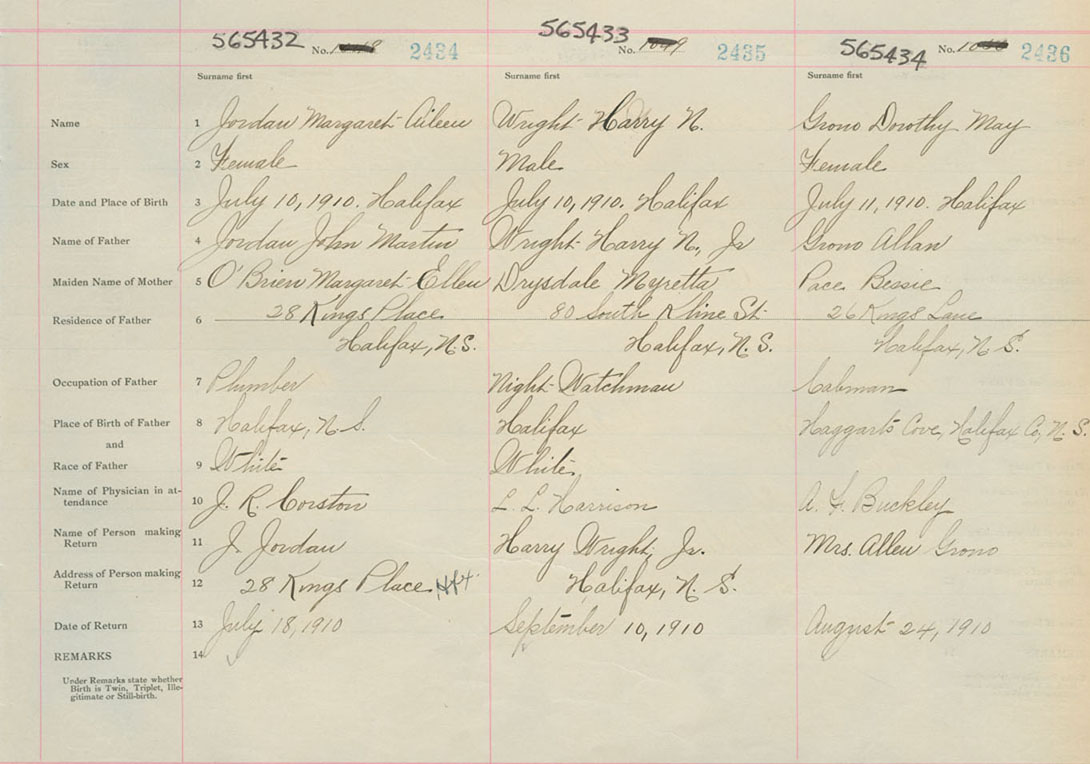 565432 No. 2434 565433 No. 1049 2435 565434 No. 2436
Surname first Surname first Surname first
Name 1 Jordan Margaret Aileen Wright Harry N. Grono Dorothy May
Sex 2 Female Male Female
Date and Place of Birth 3 July 10, 1910. Halifax July 10, 1910. Halifax July 11, 1910. Halifax
Name of Father 4 Jordan John Martin Wright Harry N., Jr Grono Allan
Maiden Name of Mother 5 O'Brien Margaret Ellen Drysdale Myretta Pace Bessie
Residence of Father 6 28 Kings Place 80 South Kline St. 26 Kings Lane
Halifax, N.S. Halifax, N.S. Halifax, N.S.
Occupation of Father 7 Plumber Night Watchman Cabman
Place of Birth of Father 8 Halifax, N.S. Halifax Haggarts Cove, Halifax Co, N.S.
and
Race of Father 9 White White
Name of Physician in at-
tendance 10 J. R. Corston L. L. Harrison A. F. Buckley
Name of Person making
Return 11 J. Jordan Harry Wright, Jr. Mrs. Allen Grono
Address of Person making
Return 12 28 Kings Place Hfx. Halifax, N.S.
Date of Return 13 July 18, 1910 September 10, 1910 August 24, 1910
REMARKS 14
Under Remarks state whether
Birth is Twin, Triplet, Ille-
gitimate or Still-birth.